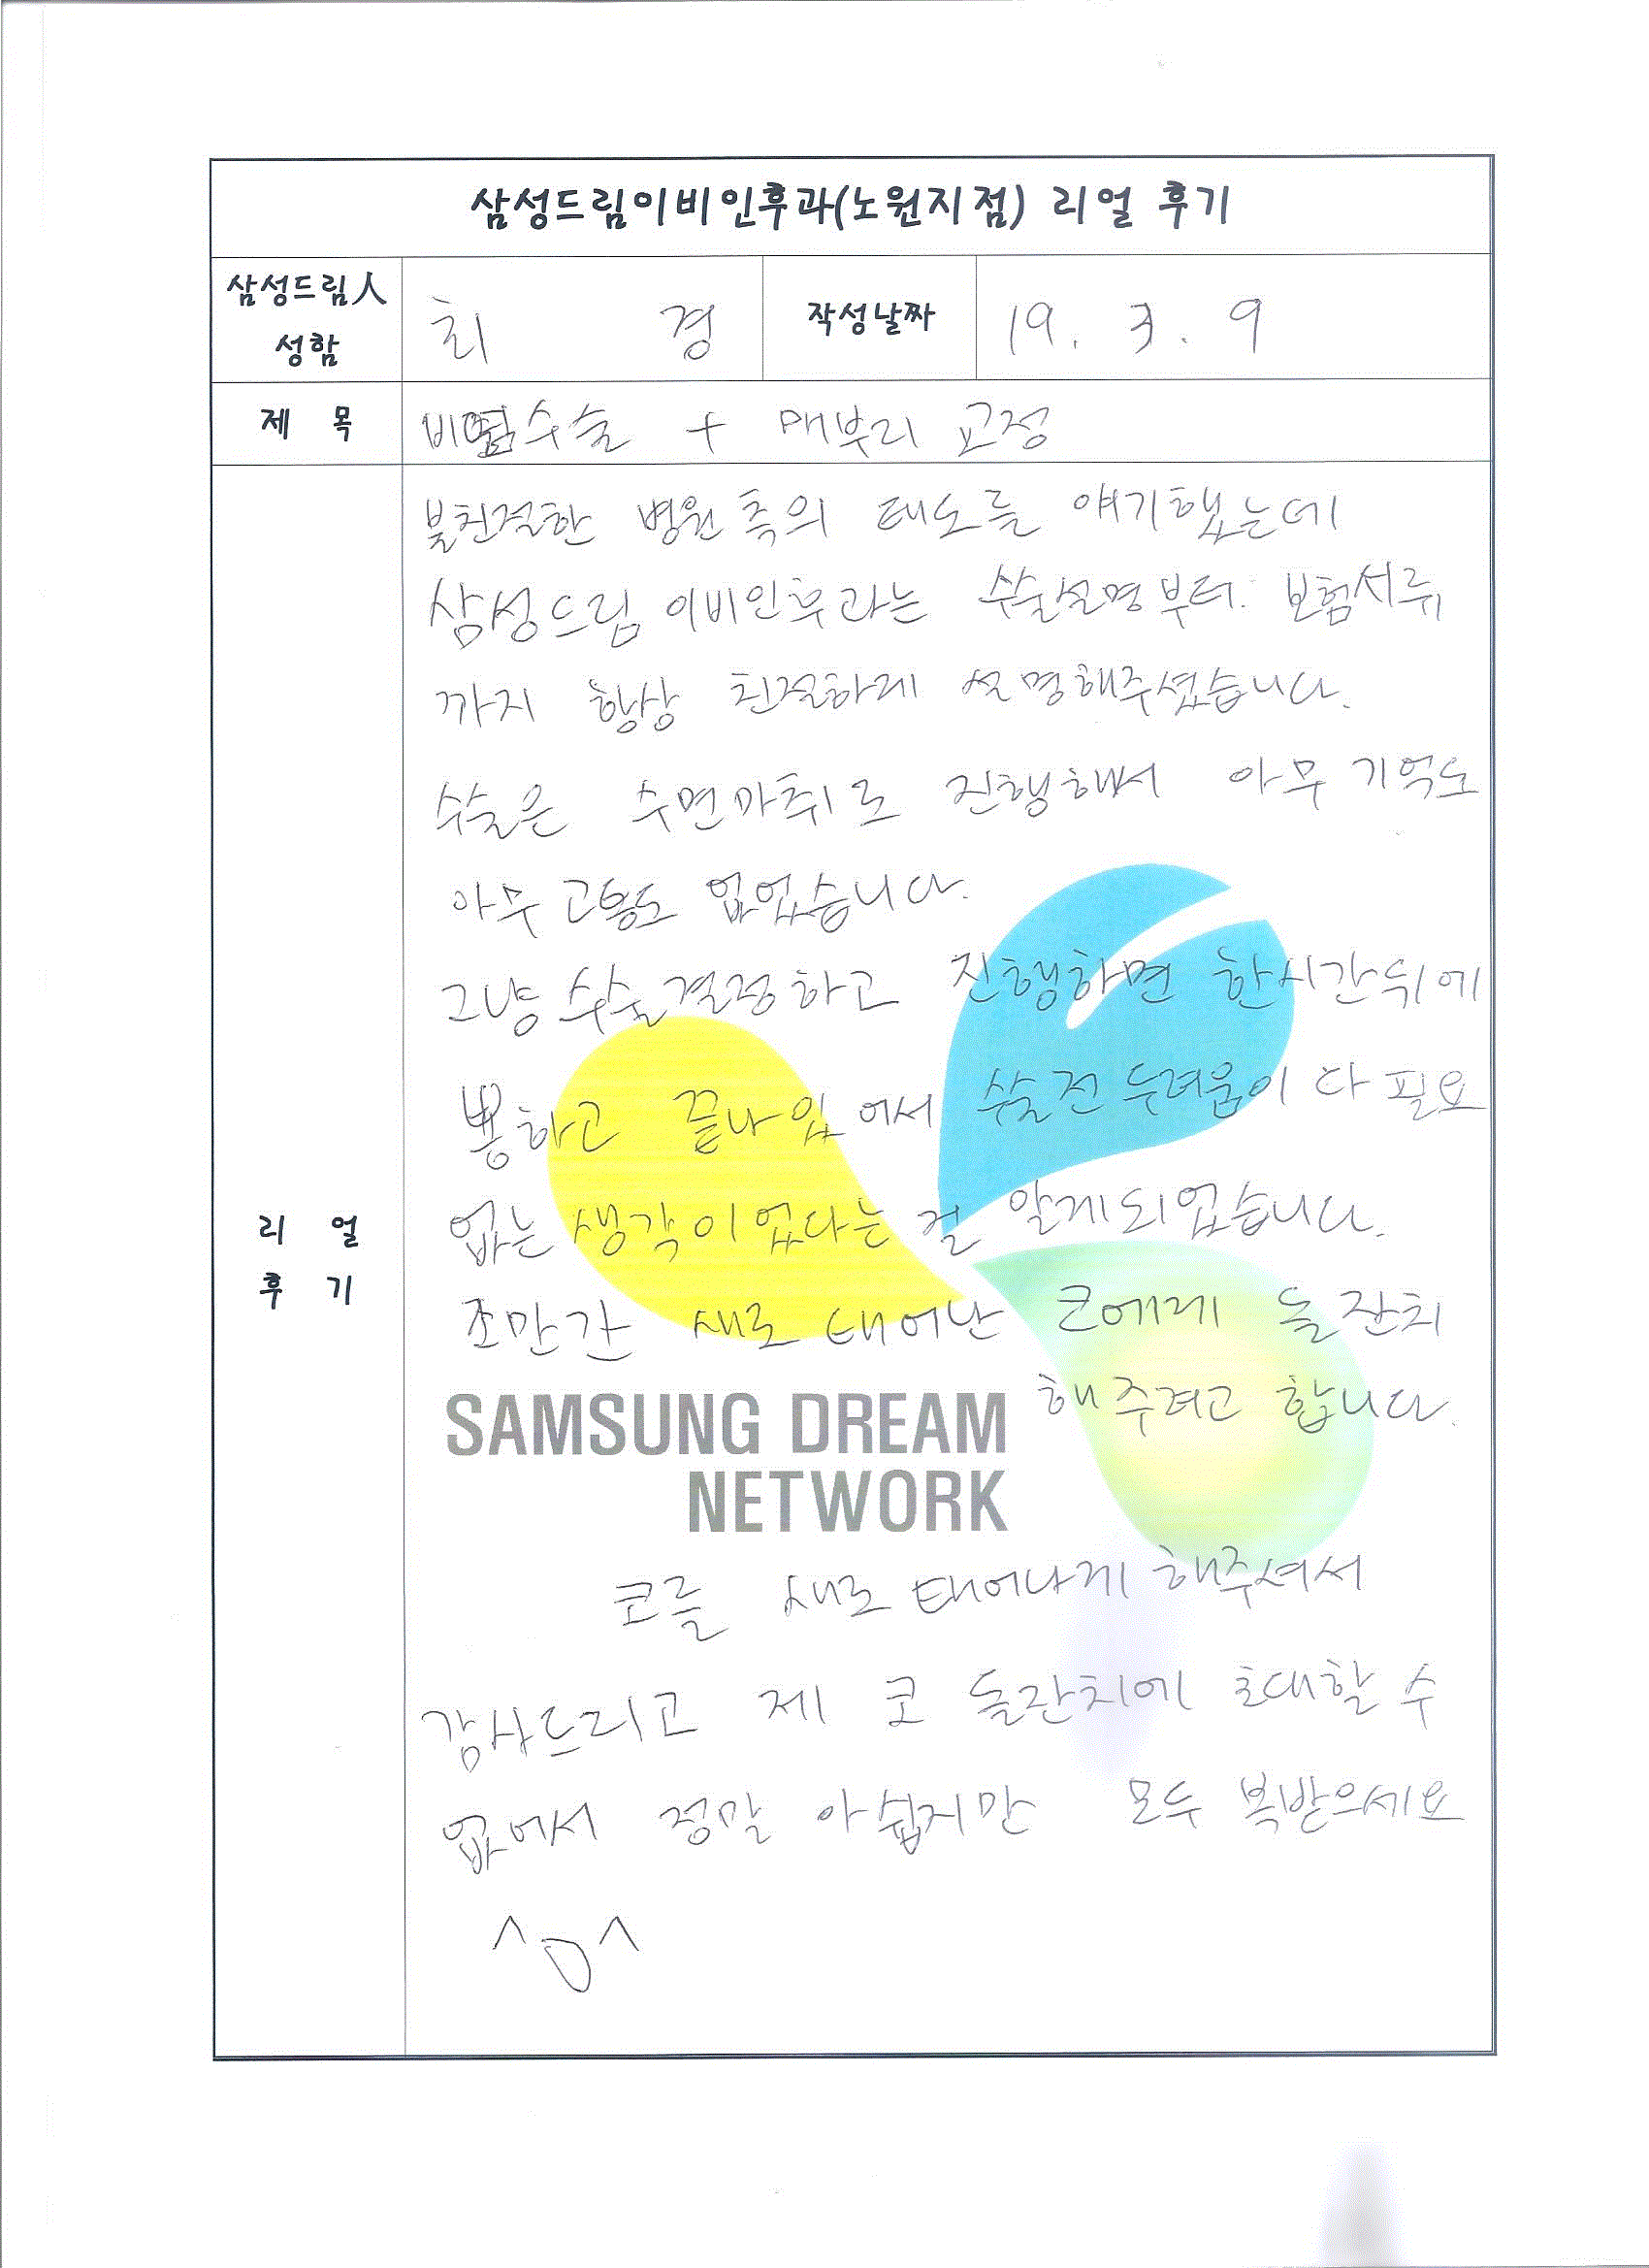 삼성드림이비인후과(노원지점) 리얼 후기
삼성드림人
성함
최 경
작성날짜
19. 3. 9
제 목
비염수술 + 매부리 교정
불친절한 병원 측의 태도를 얘기했는데
삼성드림 이비인후과는 수술설명부터 보험서류
까지 항상 친절하게 설명해주셨습니다.
수술은 수면마취로 진행해서 아무 기억도
아무 고통도 없었습니다.
그냥 수술결정하고 진행하면 한시간뒤에
뿅하고 끝나있어서 수술전 두려움이 다 필요
없는 생각이었다는 걸 알게되었습니다.
리 얼
후 기
조만간 새로 태어난 코에게 돌잔치
해주려고 합니다.
SAMSUNG DREAM
NETWORK
코를 새로 태어나게 해주셔서
감사드리고 제 코 돌잔치에 초대할 수
없어서 정말 아쉽지만 모두 복받으세요
^0^